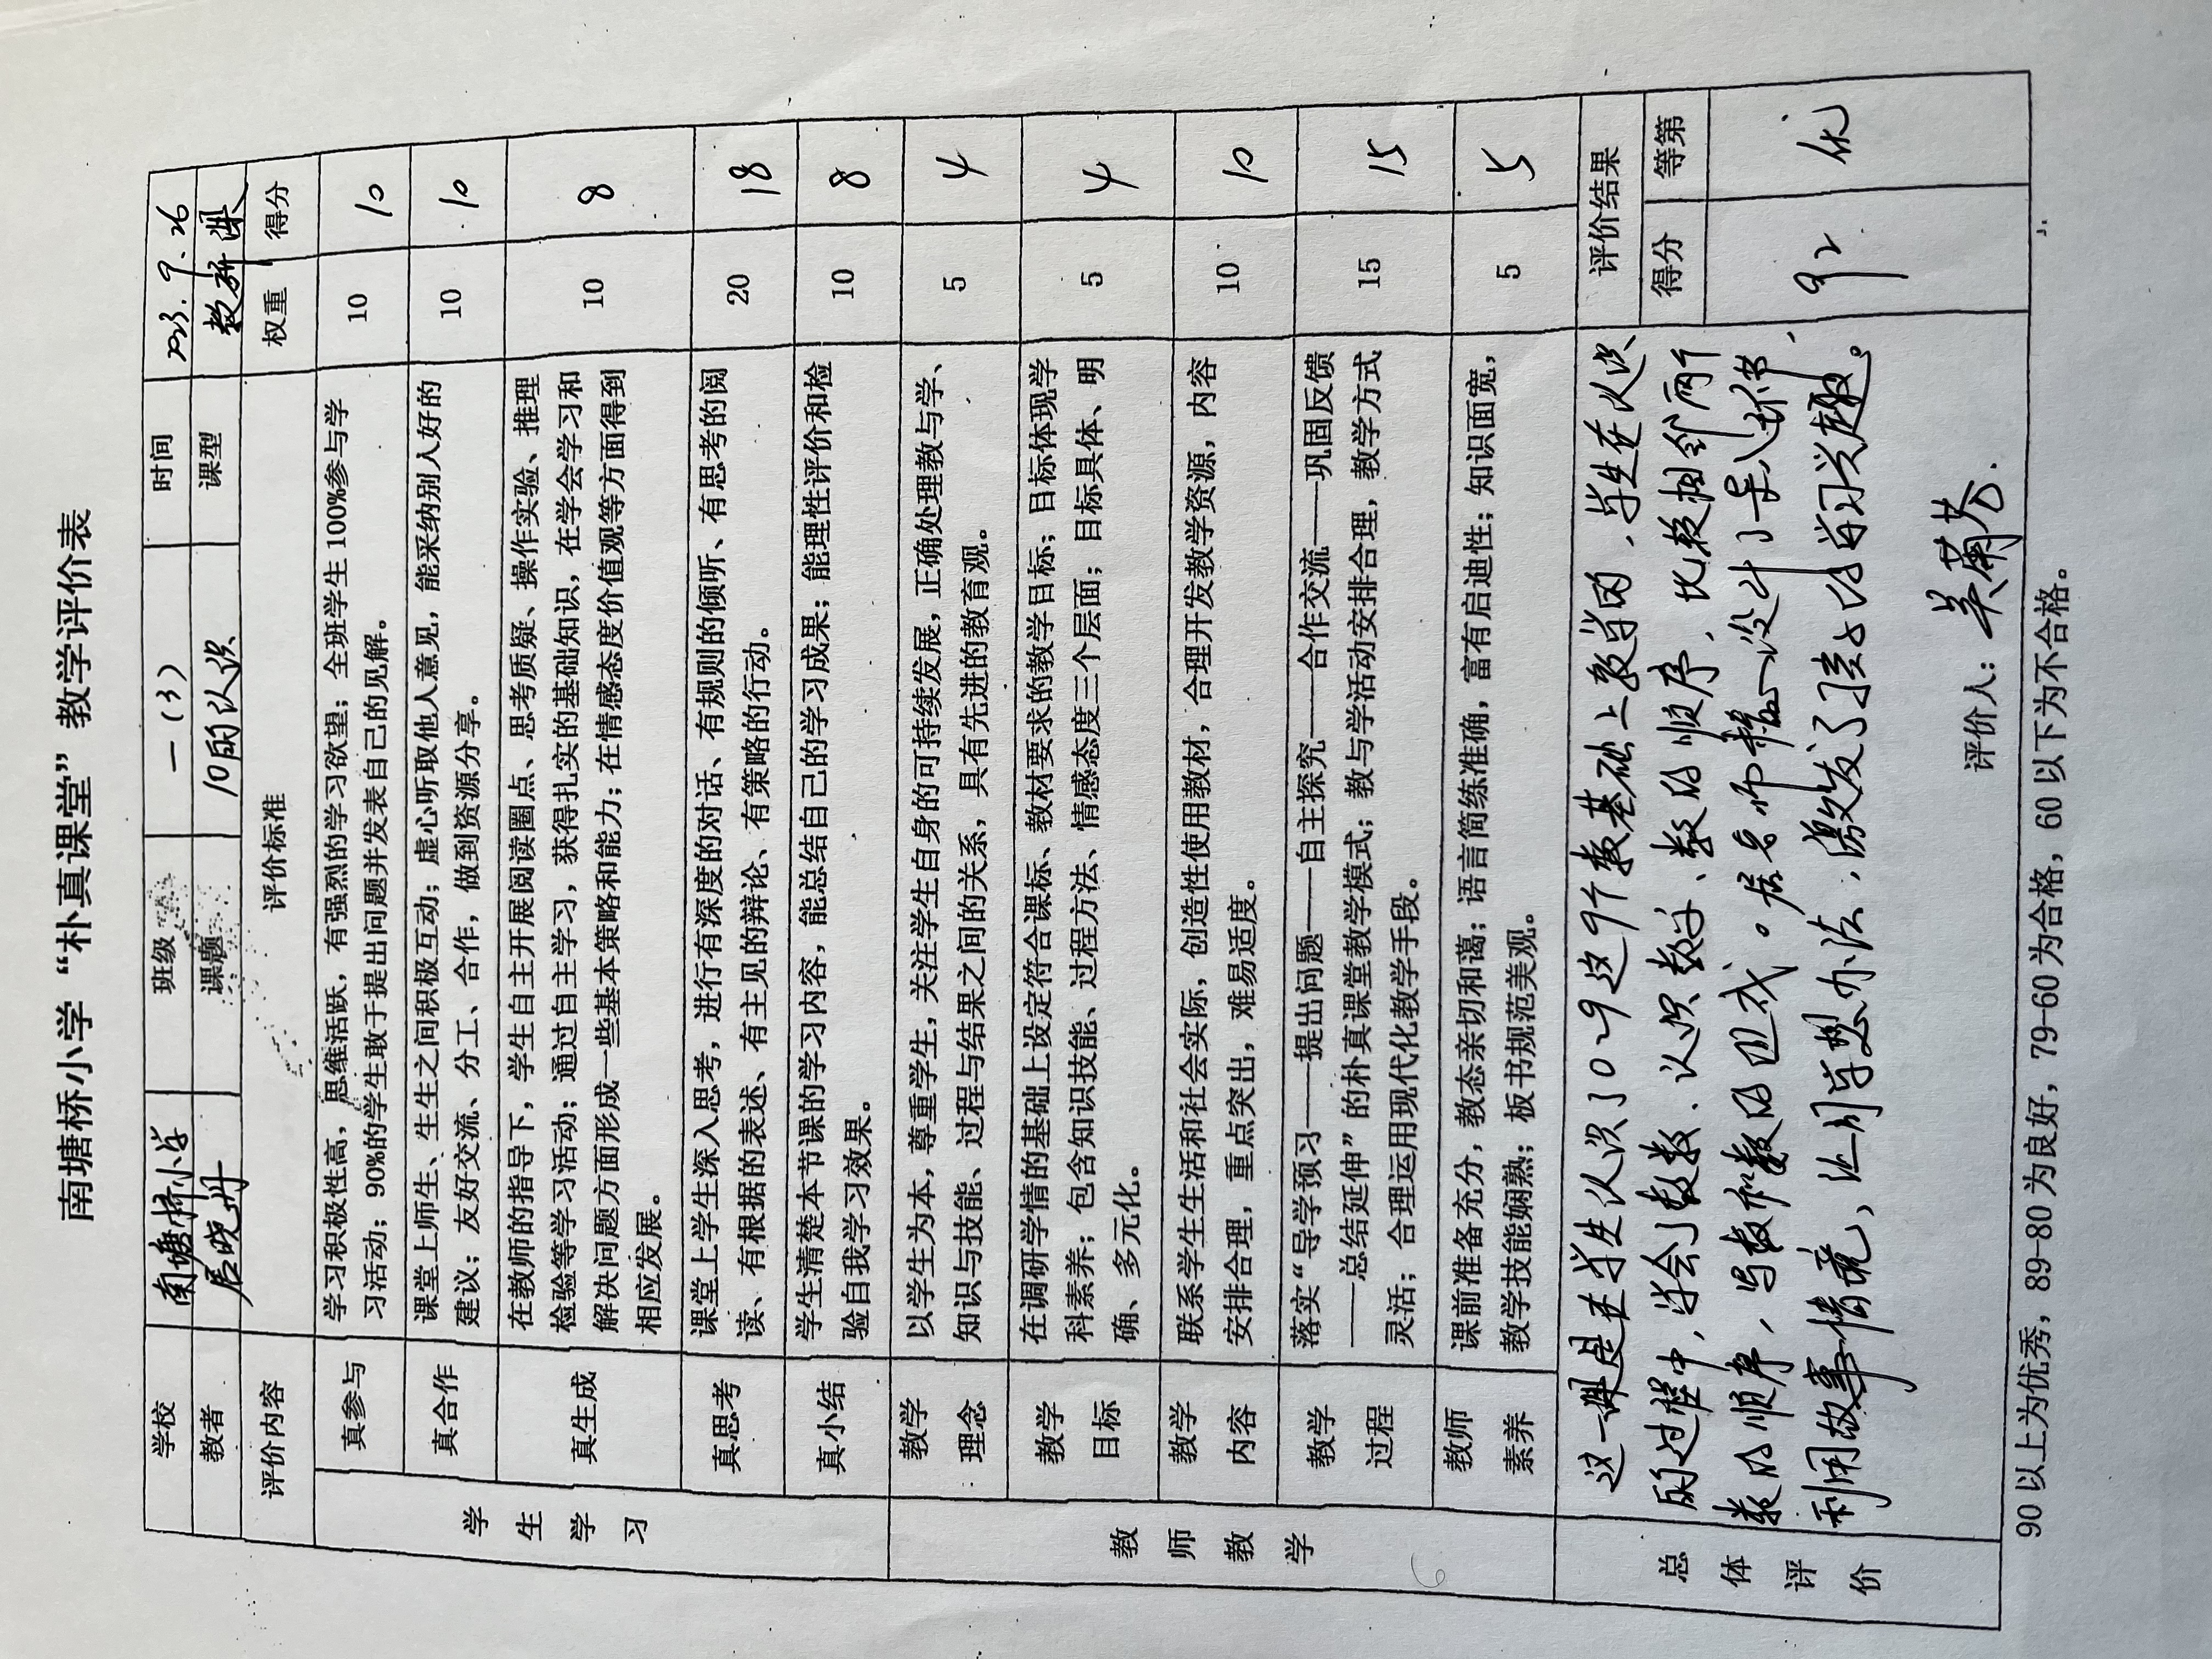 南塘桥小学“朴真课堂”教学评价表
学校 南塘桥小学 班级 一（3） 时间 2023.9.26
教者 居晓丹 课题 10的认识 课型 教研课
评价内容 评价标准 权重 得分
学生学习
真参与 学习积极性高，思维活跃，有强烈的学习欲望；全班学生100%参与学 10 10
习活动；90%的学生敢于提出问题并发表自己的见解。
真合作 课堂上师生、生生之间积极互动；虚心听取他人意见，能采纳别人好的 10 10
建议；友好交流、分工、合作，做到资源分享。
真生成 在教师的指导下，学生自主开展阅读圈点、思考质疑、操作实验、推理 10 8
检验等学习活动；通过自主学习，获得扎实的基础知识，在学会学习和
解决问题方面形成一些基本策略和能力；在情感态度价值观等方面得到
相应发展。
真思考 课堂上学生深入思考，进行有深度的对话、有规则的倾听、有思考的阅 20 18
读、有根据的表述、有主见的辩论、有策略的行动。
真小结 学生清楚本节课的学习内容，能总结自己的学习成果；能理性评价和检 10 8
验自我学习效果。
教师教学
教学理念 以学生为本，尊重学生，关注学生自身的可持续发展，正确处理教与学、 5 4
知识与技能、过程与结果之间的关系，具有先进的教育观。
教学目标 在调研学情的基础上设定符合课标、教材要求的教学目标；目标体现学 5 4
科素养；包含知识技能、过程方法、情感态度三个层面；目标具体、明
确、多元化。
教学内容 联系学生生活和社会实际，创造性使用教材，合理开发教学资源，内容 10 10
安排合理，重点突出，难易适度。
教学过程 落实“导学预习——提出问题——自主探究——合作交流——巩固反馈 15 15
——总结延伸”的朴真课堂教学模式；教与学活动安排合理，教学方式
灵活；合理运用现代化教学手段。
教师素养 课前准备充分，教态亲切和蔼；语言简练准确，富有启迪性；知识面宽， 5 5
教学技能娴熟；板书规范美观。
总体评价
这一课是在学生认识了0~9这9个数基础上教学的，学生在认识
的过程中，学会了数数、认识数字、数的顺序，比较相邻两个
数的顺序，写数和数的组成。居老师精心设计了导入环节，
利用故事情境，让同学想办法，激发了孩子的学习兴趣。
评价人：吴菊芳.
评价结果
得分 等第
92 优
90以上为优秀，89-80为良好，79-60为合格，60以下为不合格。